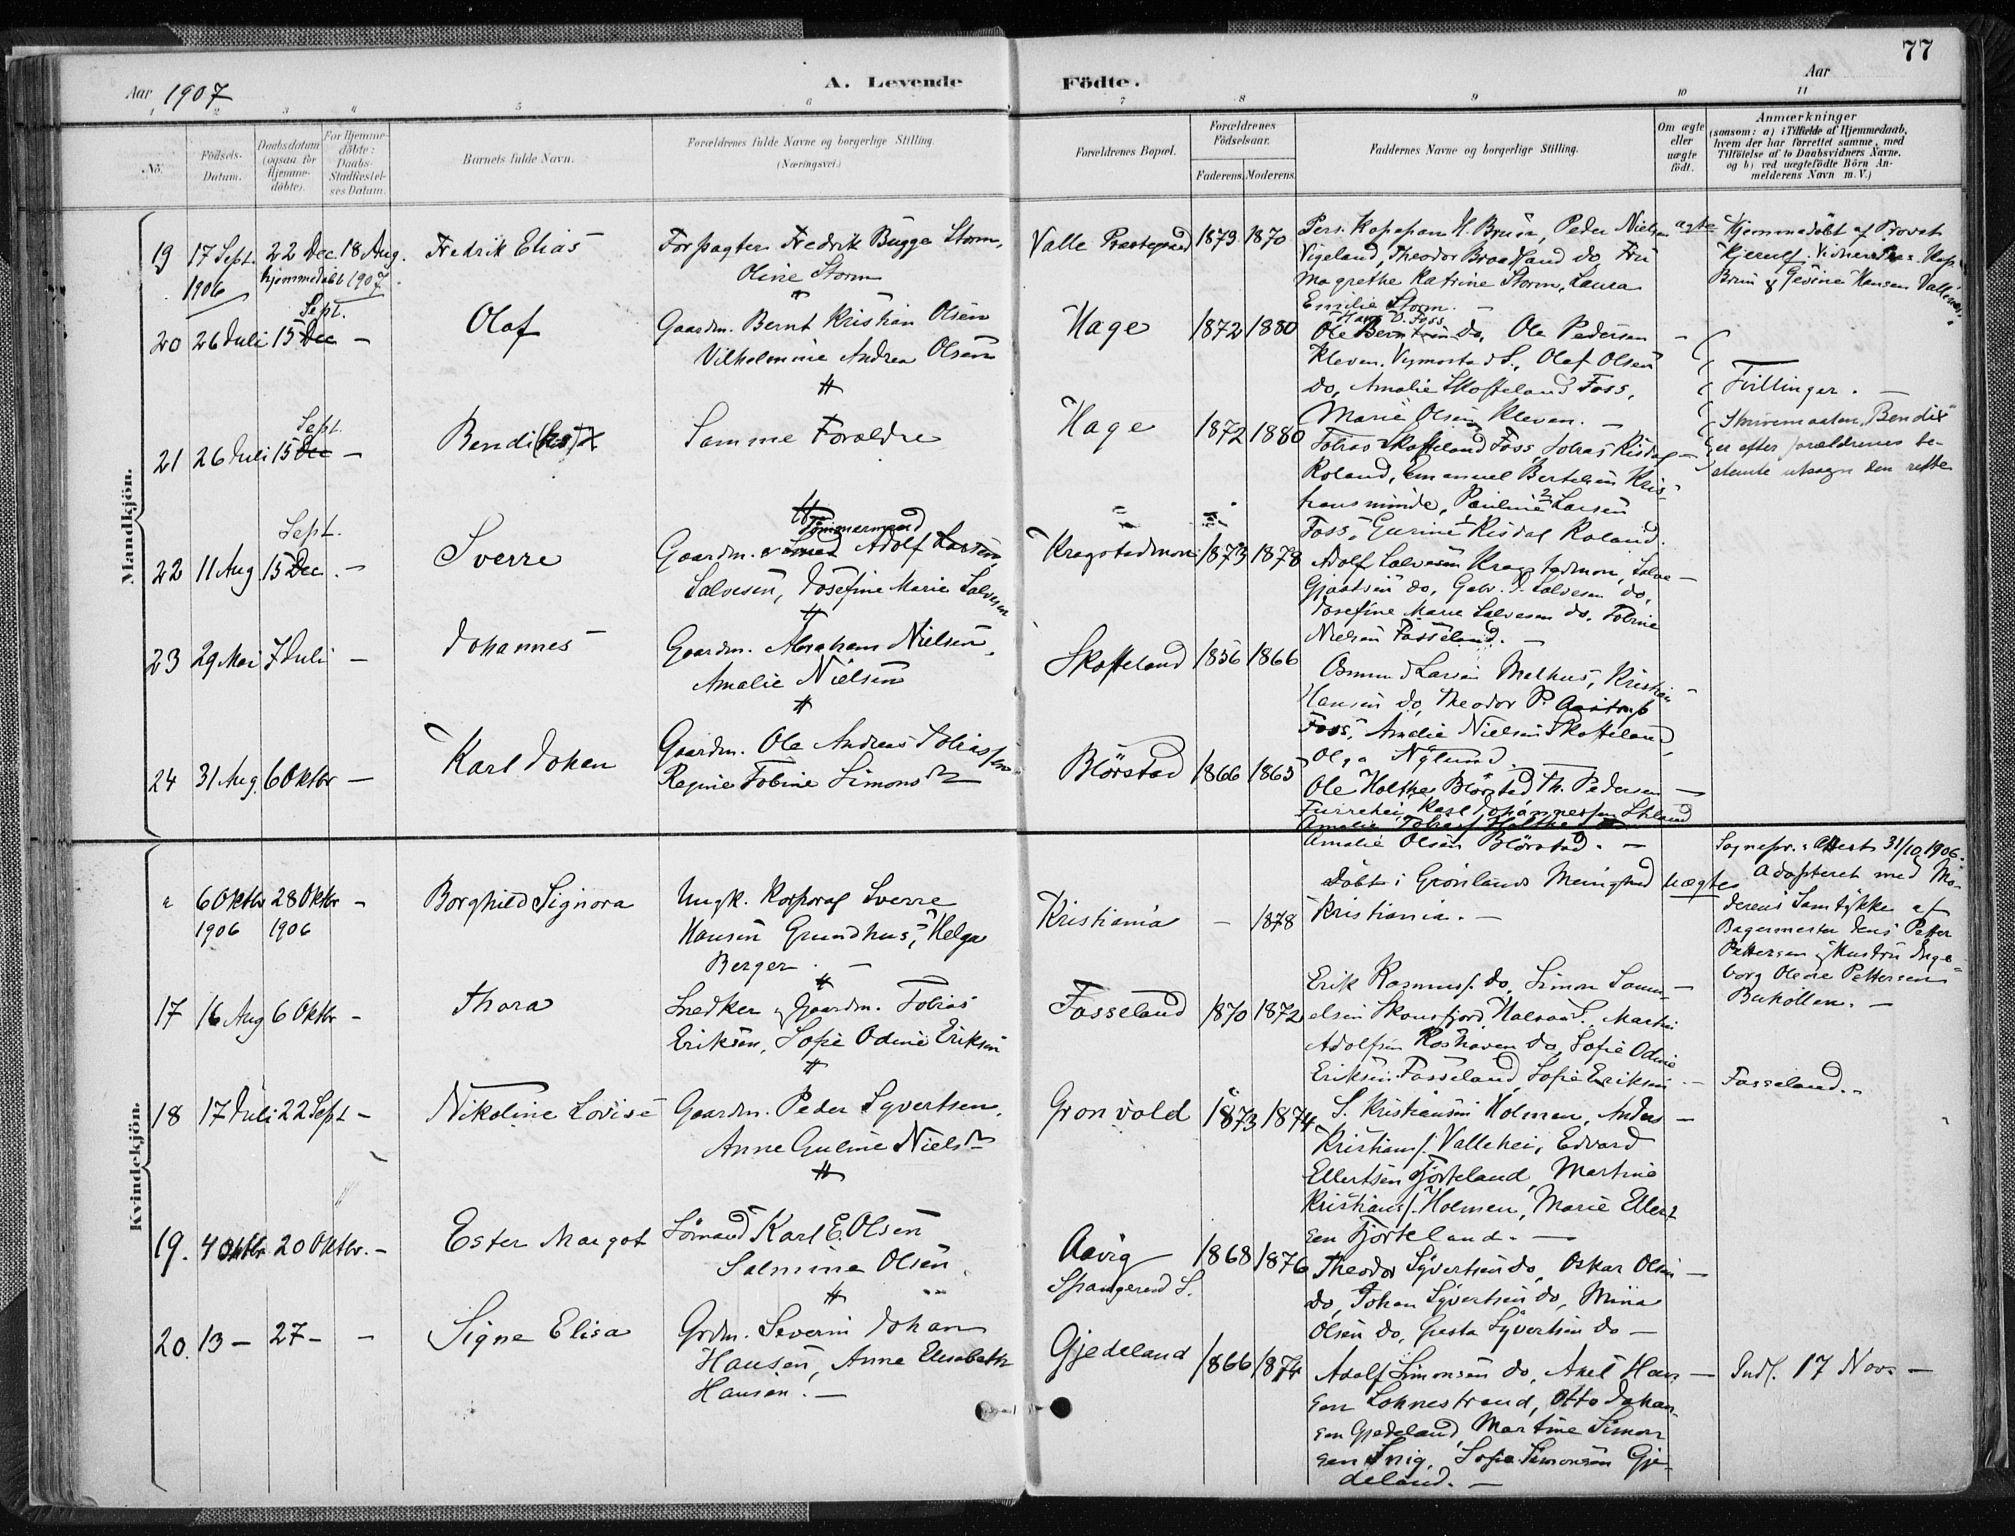 77
Aar 1907
A. Levende Födte.
Aar
1 2 3 4 5 6 7 8 9 10 11
No.
Födsels-Datum.
Daabsdatum (ogsaa for Hjemmedöbte).
For Hjemmedöbte: Daabs-Stadfæstelses Datum.
Barnets fulde Navn.
Forældrenes fulde Navne og borgerlige Stilling.
(Næringsvei.)
Forældrenes Bopæl.
Forældrenes Födselsaar.
Faderens. Moderens.
Faddernes Navne og borgerlige Stilling.
Om ægte eller uægte födt.
Anmærkninger
(saasom: a) i Tilfælde af Hjemmedaab, hvem der har forrettet samme, med Tilföielse af to Daabsvidners Navne, og b) ved uægtefödte Börn Anmelderens Navn m. V.)
Mandkjön.
19 17 Sept. 22 Dec. 18 Aug.
1906 hjemmedöbt 1907.
Fredrik Elias
Forpagter Fredrik Bugge Storm,
Oline Storm
Valle Præstegaard 1879 1870
Pers. Kapepan H. Bruun, Peder Nielsen
Vigeland, Theodor Braadland do, Fru
Magrethe Katrine Storm, Laura
Emilie Storm. -
ægte
Hjemmedöbt af Provst
Hjerulf. Vidner
Bruun & Gesine Hansen Vallemoen.
20 26 Juli 15 Dec Sept. -
Olaf
Gaardm. Bernt Kristian Olsen
Vilhelmine Andrea Olsen
Hage 1872 1880
Hans O. Foss
do, Ole Pedersen
Kleven, Vigmostad S., Olaf Olsen
do, Amalie Skofteland Foss,
Marie Olsen Kleven. -
Tvillinger. -
21 26 Juli 15 Dec Sept. -
Bendi(ks)x
Samme Foreldre
Hage 1872 1880
Tobias Skofteland Foss, Tobias Risdal
Roland, Emanuel Bertelsen Kris-
tiansminde, Pauline Larsen
Foss, Gurine Risdal Roland.
Skrivemaaten "Bendix"
er efter forældrenes be-
stemte utsagn den rette
22 11 Aug 15 Dec Sept. -
Sverre
Tömmermand
Gaardm. & Smed Adolf Larsen,
Salvesen, Josefine Marie Salvesen
Kragstadmoen 1873 1878
Adolf Salvesen Kragstadmoen, Salve
do, Gabr. S. Salvesen do,
Josefine Marie Salvesen do, Tobine
Nielsen Fosseland. -
23 29 Mai 7 Juli -
Johannes
Gaardm. Abraham Nielsen,
Amalie Nielsen
Skofteland 1856 1866
Osmund Larsen Melhus, Kristian
Hansen do, Theodor P.
Foss, Amalie Nielsen Skofteland,
Olga Nylund. -
24 31 Aug. 6 Oktbr -
Karl Johan
Gaardm. Ole Andreas Tobiassen
Regine Tobine Simonsdtr
Blörstad 1866 1865
Ole Holthe Blörstad, Th. Pedersen
Furrehei, Karl Johannessen
Amalie Olsen Blörstad. -
Kvindekjön.
a 6 Oktbr 28 Oktbr -
1906 1906
Borghild Signora
Ungk. Korporal Sverre
Hansen Grundhus, Helga
Berger. -
Kristiania - 1878
Döbt i Grönlands Menighed
Kristiania. -
Uægte
Sognepr.s Attest 31/10 1906.
Adopteret med Mo-
derens Samtykke af
Bagermester Jens Petter
Pettersen & Hustru Inge-
borg Olene Pettersen
17 16 Aug 6 Oktbr -
Thora
Snedker & Gaardm. Tobias
Eriksen, Sofie Odine Eriksen
Fosseland 1870 1872
Erik Rasmuss. do, Simon Samu-
elsen Skonsfjord, Halsaa S., Martin
Adolfsen Roshaven do, Sofie Odine
Eriksen Fosseland, Sofie Eriksen
Fosseland. -
18 17 Juli 22 Sept -
Nikoline Lovise
Gaardm. Peder Syvertsen,
Anne Guline Nielsdtr
Grønvold 1873 1874
S. Kristiansen Holmen, Anders
Kristians. Vallehei, Edvard
Ellertsen Fjorteland, Martine
Kristians. Holmen, Marie Ellert
sen Fjorteland. -
19. 4 Oktbr 20 Oktbr. -
Ester Margot
Sömand Karl E. Olsen
Salmine Olsen
Aavig
Spangereid S.
1868 1876
Theodor Syvertsen do, Oskar Olsen
do, Johan Syvertsen do, Mina
Olsen do, Gusta Syvertsen do -
20. 13 - 27 - -
Signe Elisa
Grdm. Severin Johan
Hansen, Anne Elisabeth
Hansen. -
Gjedeland 1866 1874
Adolf Simonsen do, Axel Han-
sen Lohnestrand, Otto Johan-
sen Gjedeland, Martine Simon
sen Snig, Sofie Simonsen Gje-
deland. -
Indl. 17 Nov. -